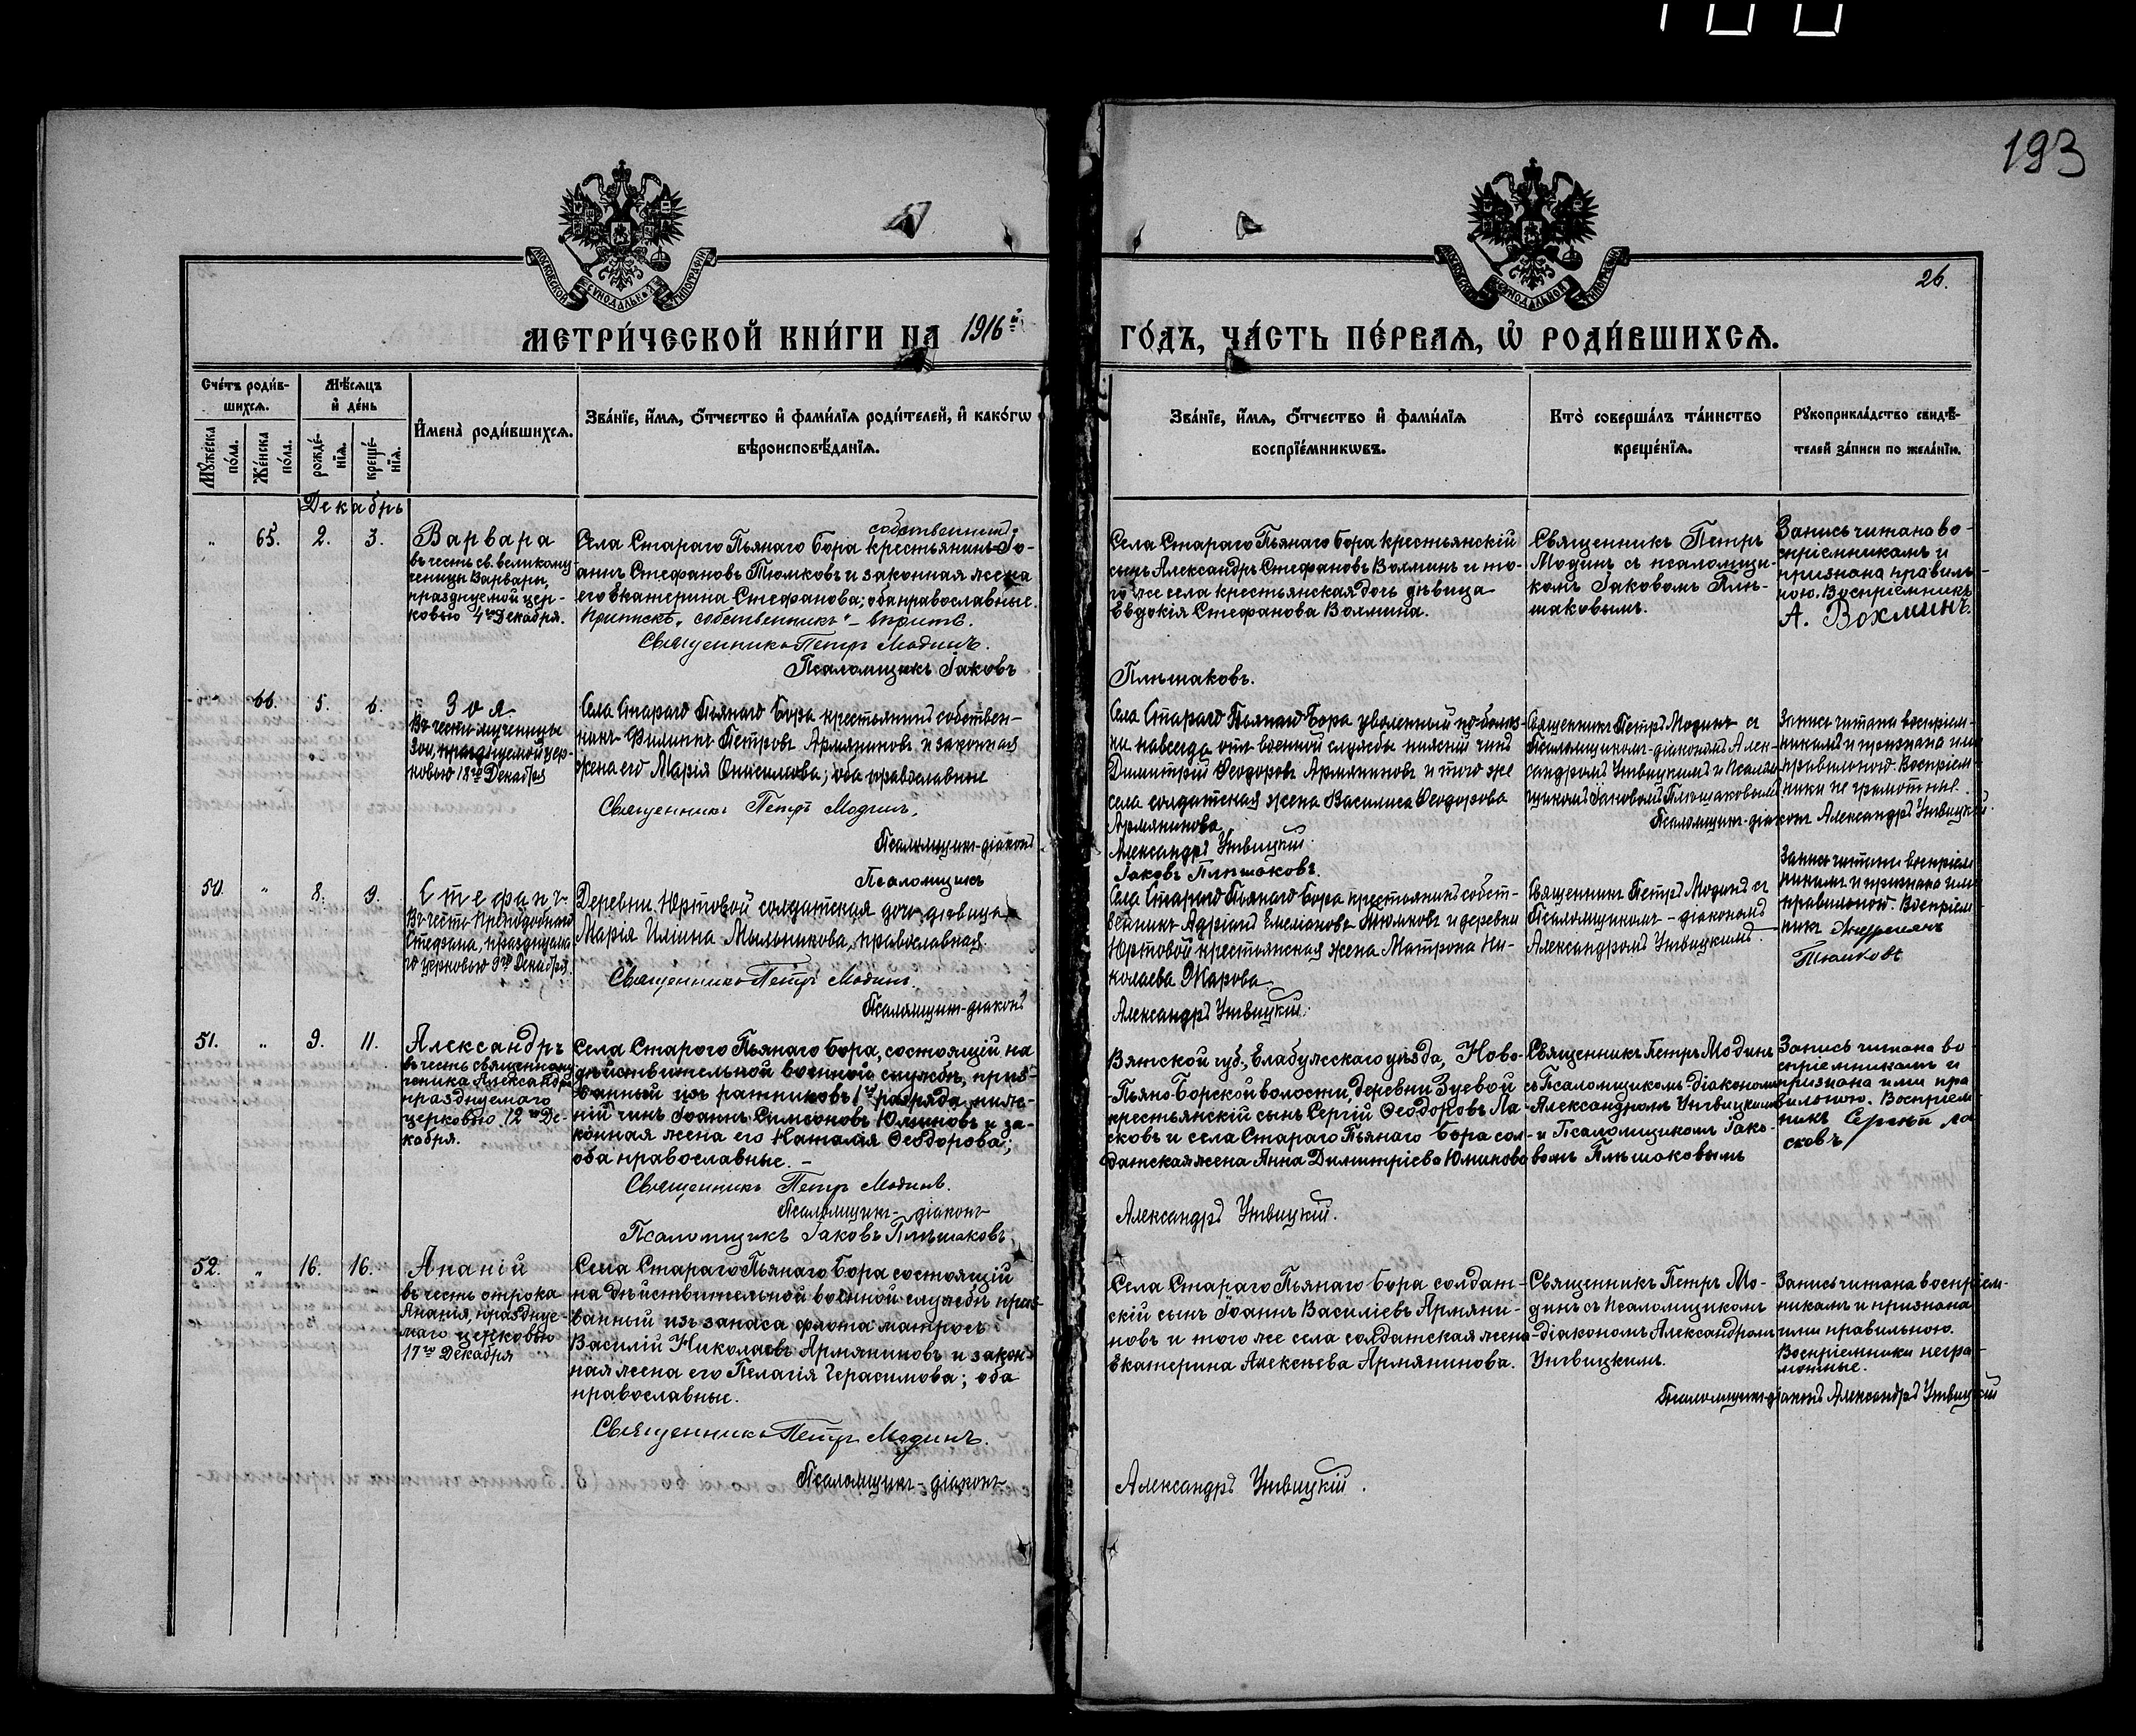 193
26.
МОСКОВСКОЙ СѴНОДАЛЬНОЙ ТИПОГРАФІИ
МОСКОВСКОЙ СѴНОДАЛЬНОЙ ТИПОГРАФІИ
МЕТРИ́ЧЕСКОЙ КНИ́ГИ НА 1916й ГО́ДЪ, ЧА́СТЬ ПЕ́РВАѦ, Ѡ РОДИ́ВШИХСѦ.
Сче́тъ роди́в-
шихсѧ.
Мѣ́сѧцъ
и҆ де́нь
Мꙋ́жеска
по́ла.
Же́нска
по́ла.
рожде́-
нїѧ.
креще́-
нїѧ.
И҆мена̀ роди́вшихсѧ.
Зва́нїе, и҆́мѧ, ѻ҆́тчество и҆ фами́лїѧ роди́телей, и҆ како́гѡ
вѣроисповѣ́данїѧ.
Зва́нїе, и҆́мѧ, ѻ҆́тчество и҆ фами́лїѧ
воспрїе́мникѡвъ.
Кто̀ соверша́лъ та́инство
креще́нїѧ.
Рꙋкоприкла́дство свидѣ́-
телей за́писи по жела́нїю.
Декабрь
„ 65. 2. 3.
Варвара
въ честь св. великому-
ченицы Варвары,
празднуемой цер-
ковью 4го Декабря.
собственникъ
Села Стараго Пьянаго Бора крестьянинъ Іо-
аннъ Стефановъ Тюмковъ и законная жена
его Екатерина Стефанова; оба православные.
Припискѣ „собственникъ" – вѣрить.
Священникъ Петръ Модинъ.
Псаломщикъ Іаковъ
Села Стараго Пьянаго Бора крестьянскій
сынъ Александръ Стефановъ Вохминъ и то-
го же села крестьянская дочь дѣвица
Евдокія Стефанова Вохмина.
Плѣшаковъ.
Священникъ Петръ
Модинъ съ псаломщи-
комъ Іаковомъ Плѣ-
шаковымъ.
Запись читана во-
спріемникамъ и
признана правиль-
ною. Воспріемникъ
А. Вохминъ.
„ 66. 5. 6.
Зоя
Въ честь мученицы
Зои, празднуемой цер-
ковью 18го Декабря
Села Стараго Пьянаго Бора крестьянинъ собствен-
никъ Филиппъ Петровъ Армяниновъ и законная
жена его Марія Онисимова; оба православные
Священникъ Петръ Модинъ.
Псаломщикъ-діаконъ
Псаломщикъ
Села Стараго Пьянаго Бора уволенный по болѣз-
ни навсегда отъ военной службы нижній чинъ
Димитрій Ѳеодоровъ Армяниновъ и того же
села солдатская жена Василиса Ѳеодорова
Армянинова
Александръ Утвицкій.
Іаковъ Плѣшаковъ.
Священникъ Петръ Модинъ съ
Псаломщикомъ-діакономъ Алек-
сандромъ Утвицкимъ и Псалом-
щикомъ Іаковомъ Плѣшаковымъ
Запись читана воспріем-
никамъ и признана ими
правильною. Воспріем-
ники не грамотные.
Псаломщикъ-діаконъ Александръ Утвицкій.
50. „ 8. 9.
Стефанъ
Въ честь Преподобнаго
Стефана, празднуема-
го церковью 9го Декабря.
Деревни Юртовой солдатская дочь дѣвица
Марія Иліина Мыльникова, православная.
Священникъ Петръ Модинъ.
Псаломщикъ-діаконъ
Села Стараго Пьянаго Бора крестьянинъ собст-
венникъ Адріанъ Емеліановъ Тюмковъ и деревни
Юртовой крестьянская жена Матрона Ни-
колаева Жарова.
Александръ Утвицкій.
Священникъ Петръ Модинъ съ
Псаломщикомъ-діакономъ
Александромъ Утвицкимъ.
Запись читана воспріем-
никамъ и признана ими
правильною. Воспріем-
никъ Андреянъ
Тюмковъ
51. „ 9. 11.
Александръ
въ честь священному-
ченика Александра
празднуемаго
церковью 12го Де-
кабря.
Села Старого Пьянаго Бора, состоящій на
дѣйствительной военной службѣ, приз-
ванный изъ ратниковъ 1го разряда, ниж-
ній чинъ Іоаннъ Симеоновъ Юминовъ и за-
конная жена его Наталія Ѳеодорова;
оба православные. –
Священникъ Петръ Модинъ.
Псаломщикъ-діаконъ
Псаломщикъ Іаковъ Плѣшаковъ
Вятской губ., Елабужскаго уѣзда, Ново-
Пьяно-Борской волости, деревни Зуевой
крестьянскій сынъ Сергій Ѳеодоровъ Ла-
сковъ и села Стараго Пьянаго Бора сол-
датская жена Анна Димитріева Юминова
Александръ Утвицкій.
Священникъ Петръ Модинъ
съ Псаломщикомъ діакономъ
Александромъ Утвицкимъ
и Псаломщикомъ Іако-
вомъ Плѣшаковымъ
Запись читана во
спріемникамъ и
признана ими пра
вильною. Воспріем
никъ Сергѣй Ла
сковъ
52. „ 16. 16.
Ананій
въ честь отрока
Ананія, праздцуе-
маго церковью
17го Декабря
Села Стараго Пьянаго Бора состоящій
на дѣйствительной военной службѣ приз-
ванный изъ запаса флота матросъ
Василій Николаевъ Армяниновъ и закон-
ная жена его Пелагія Герасимова; оба
православные.
Священникъ Петръ Модинъ.
Псаломщикъ-діаконъ
Села Стараго Пьянаго Бора солдат-
скій сынъ Іоаннъ Василіевъ Армяни-
новъ и того же села солдатская жена
Екатерина Алексѣева Армянинова.
Александръ Утвицкій.
Священникъ Петръ Мо-
динъ съ Псаломщикомъ
-діакономъ Александромъ
Утвицкимъ.
Запись читана воспріем-
никамъ и признана
ими правильною.
Воспріемники негра-
мотные.
Псаломщикъ-діаконъ Александръ Утвицкій